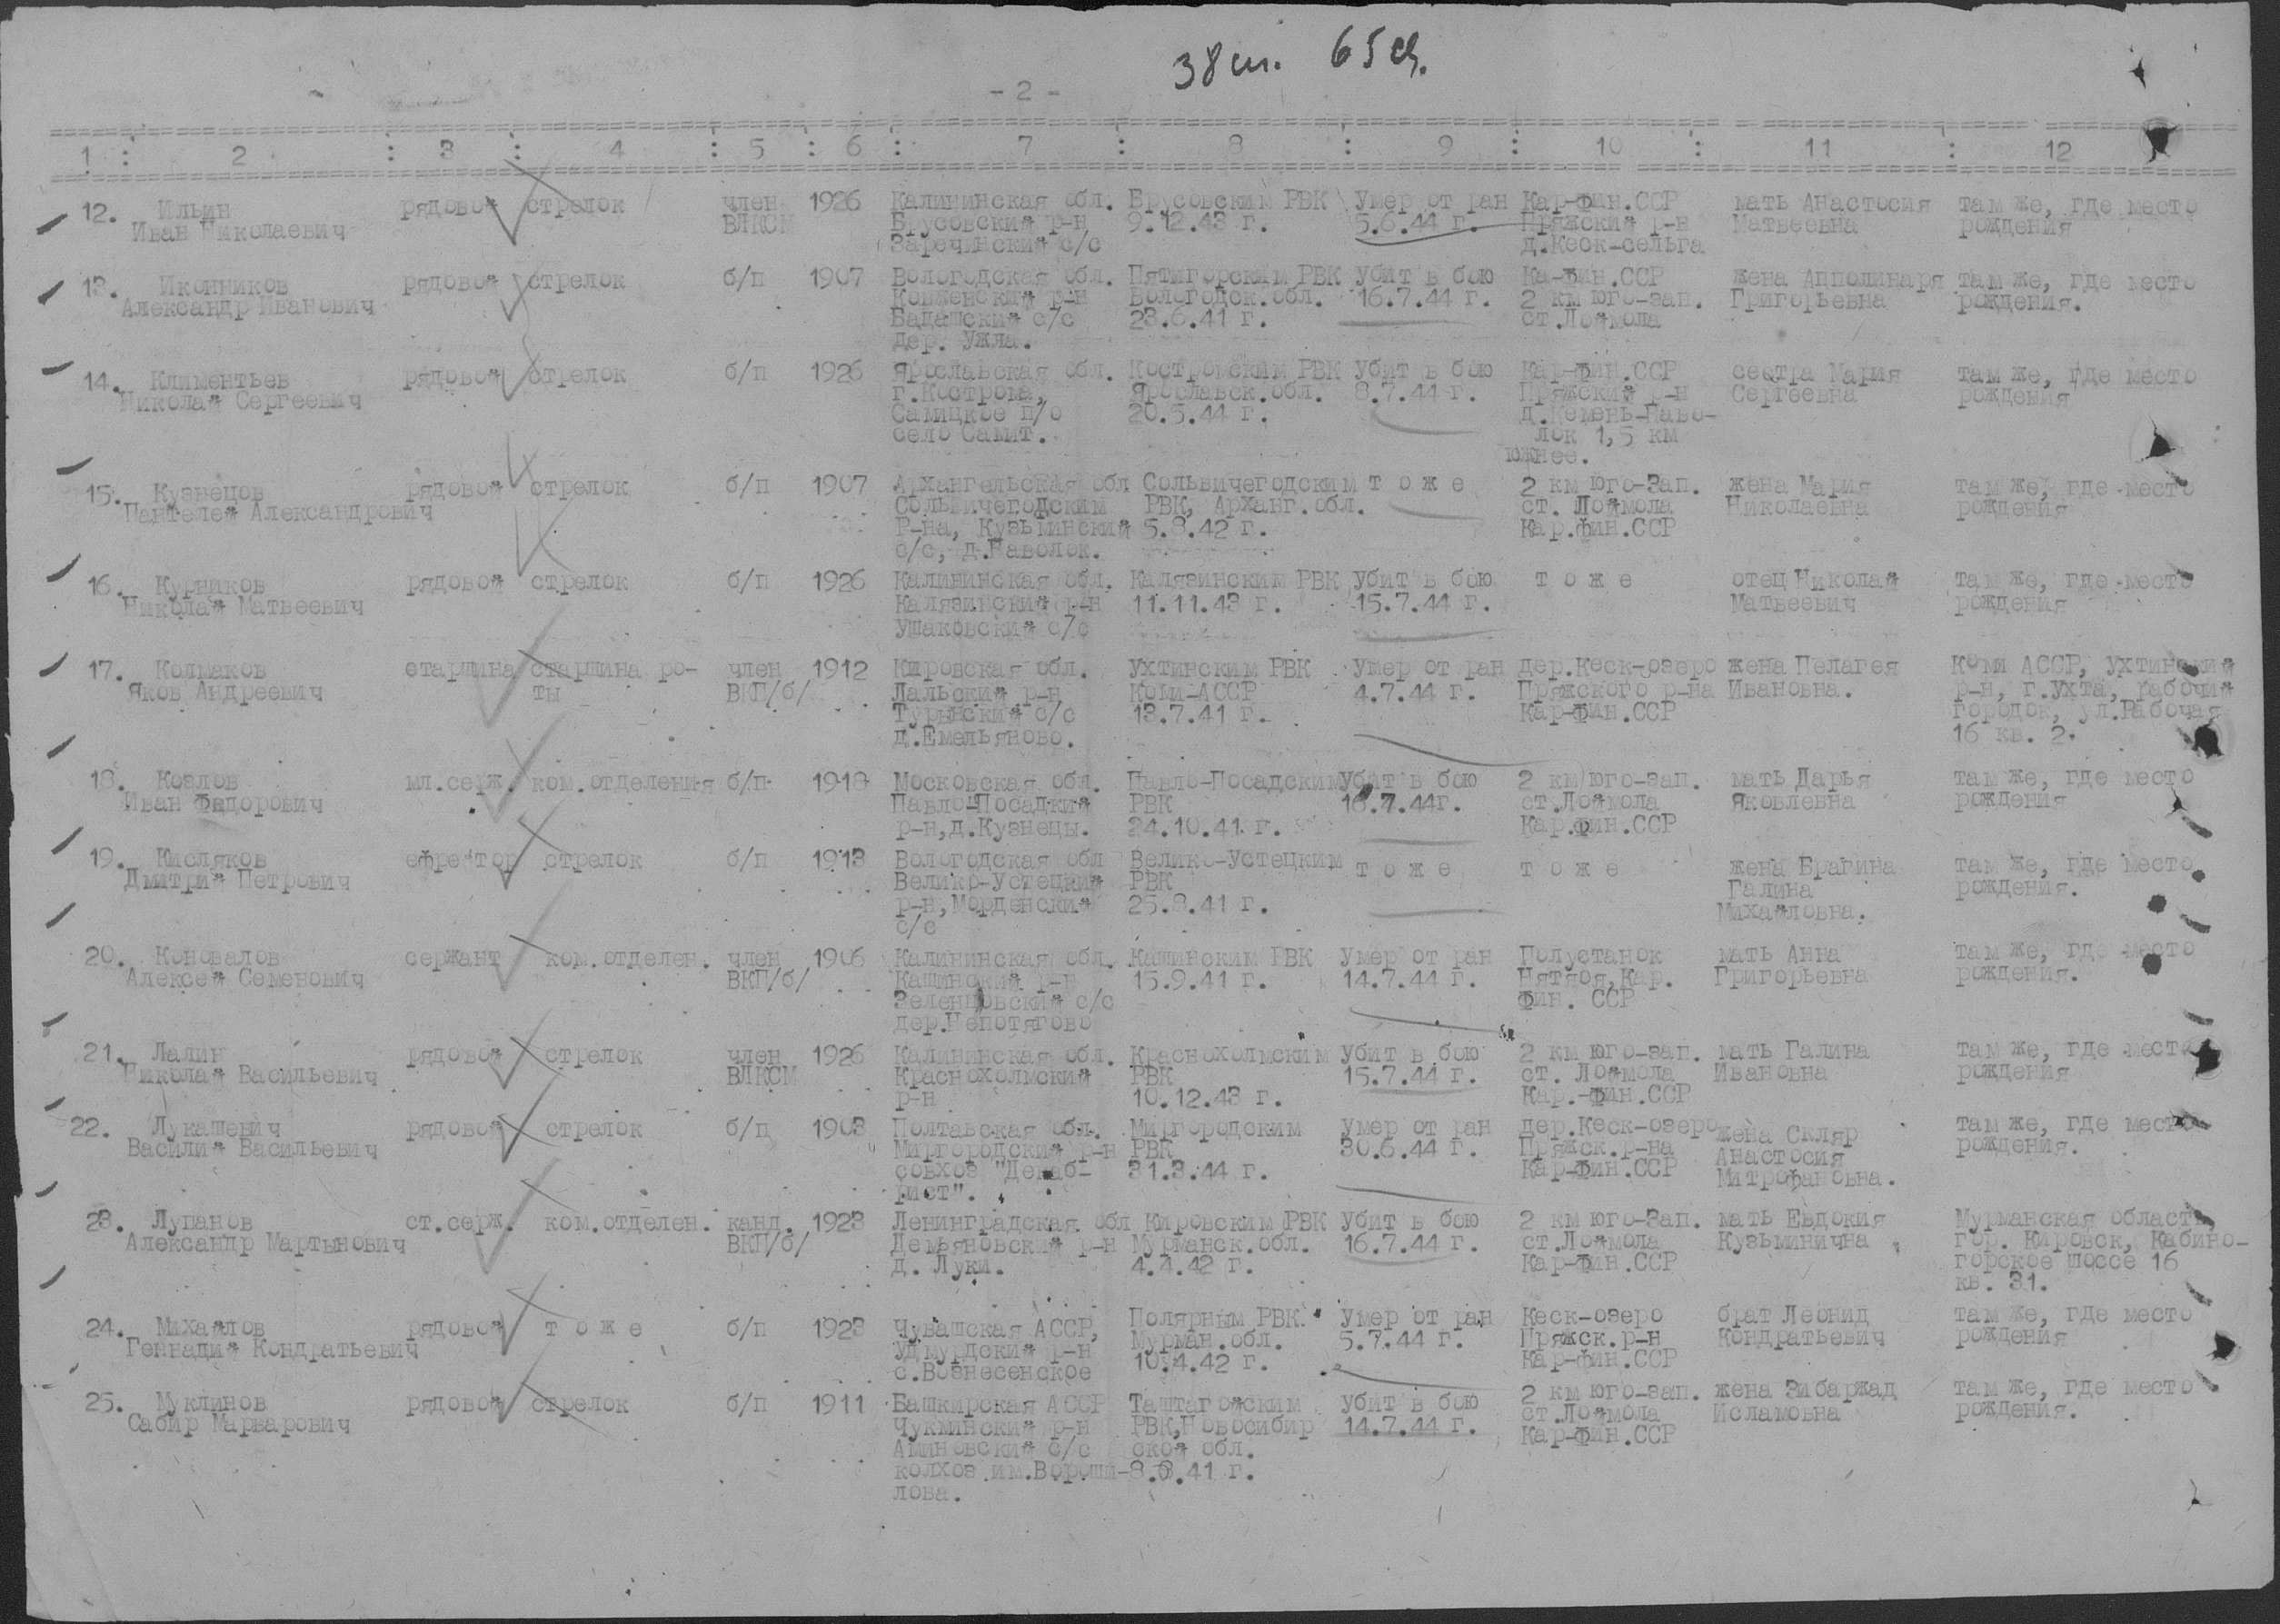 38 сп. 65 сд.
- 2 -
1 : 2 : 3 : 4 : 5 : 6 : 7 : 8 : 9 : 10 : 11 : 12
12. Ильин рядовой стрелок член 1926 Калининская обл. Брусовским РВК Умер от ран Кар-фин.ССР мать Анастосия там же, где место
Иван Николаевич ВЛКСМ Брусовский р-н 9.12.43 г. 5.6.44 г. Пряжский р-н Матвеевна рождения
Заречинский с/с д.Кеск-сельга
13. Иконников рядовой стрелок б/п 1907 Вологодская обл. Пятигорским РВК убит в бою Ка-фин.ССР жена Апполинаря там же, где место
Александр Иванович Ковженский р-н Вологодск.обл. 16.7.44 г. 2 км юго-зап. Григорьевна рождения.
Бадашский с/с 23.6.41 г. ст.Лоймола
дер. Ужла.
14. Климентьев рядовой стрелок б/п 1926 Ярославская обл. Костромским РВК убит в бою Кар-фин.ССР сестра Мария там же, где место
Николай Сергеевич г.Кострома, Ярославск.обл. 8.7.44 г. Пряжский р-н Сергеевна рождения
Самицкое п/о 20.5.44 г. д.Кемень-Наво-
село Самит. лок 1,5 км
южнее.
15. Кузнецов рядовой стрелок б/п 1907 Архангельская обл Сольвичегодским т о ж е 2 км юго-Зап. жена Мария там же, где место
Пантелей Александрович Сольвичегодским РВК, Арханг.обл. ст. Лоймола Николаевна рождения
Р-на, Кузьминский 5.8.42 г. Кар.фин.ССР
с/с, д.Наволок.
16. Курников рядовой стрелок б/п 1926 Калининская обл. Калязинским РВК убит в бою т о ж е отец Николай там же, где место
Николай Матвеевич Калязинский р-н 11.11.43 г. 15.7.44 г. Матвеевич рождения
Ушаковский с/с
17. Колмаков старшина старшина ро- член 1912 Кировская обл. Ухтинским РВК Умер от ран дер.Кеск-озеро жена Пелагея Коми АССР, Ухтинский
Яков Андреевич ты ВКП/б/ Лальский р-н Коми-АССР 4.7.44 г. Пряжского р-на Ивановна. р-н, г.Ухта, рабочий
Турынский с/с 13.7.41 г. Кар-фин.ССР городок, ул.Рабочая
д.Емельяново. 16 кв. 2.
18. Козлов мл.серж. ком.отделения б/п 1918 Московская обл. Павло-Посадским убит в бою 2 км юго-зап. мать Дарья там же, где место
Иван Фадорович Павло-Посадкий РВК 16.7.44г. ст.Лоймола Яковлевна рождения
р-н,д.Кузнецы. 24.10.41 г. Кар.фин.ССР
19. Кисляков ефрейтор стрелок б/п 1913 Вологодская обл Велико-Устецким т о ж е т о ж е жена Брагина там же, где место
Дмитрий Петрович Велико-Устецкий РВК Галина рождения.
р-н,Морденский 25.8.41 г. Михайловна.
с/с
20. Коновалов сержант ком.отделен. член 1906 Калининская обл. Кашинским РВК умер от ран Полустанок мать Анна там же, где место
Алексей Семенович ВКП/б/ Кашинский р-н 15.9.41 г. 14.7.44 г. Нятяоя,Кар. Григорьевна рождения.
Зеленцовский с/с фин. ССР
дер.Непотягово
21. Лалин рядовой стрелок член 1926 Калининская обл. Краснохолмским убит в бою 2 км юго-зап. мать Галина там же, где место
Николай Васильевич ВЛКСМ Краснохолмский РВК 15.7.44 г. ст. Лоймола Ивановна рождения
р-н 10.12.43 г. Кар.-фин.ССР
22. Лукашевич рядовой стрелок б/п 1903 Полтавская обл. Миргородским умер от ран дер.Кеск-озеро жена Скляр там же, где место
Василий Васильевич Миргородский р-н РВК 30.6.44 г. Пряжск.р-на Анастосия рождения.
совхоз "Декаб- 31.3.44 г. Кар-Фин.ССР Митрофановна.
рист".
23. Лупанов ст.серж. ком.отделен. канд. 1923 Ленинградская обл Кировским РВК убит в бою 2 км юго-Зап. мать Евдокия Мурманская область
Александр Мартынович ВКП/б/ Демьяновский р-н Мурманск.обл. 16.7.44 г. ст.Лоймола Кузьминична гор. Кировск, Кабино-
д. Луки. 4.4.42 г. Кар-фин.ССР горское шоссе 16
кв. 31.
24. Михайлов рядовой т о ж е б/п 1923 Чувашская АССР, Полярным РВК. Умер от ран Кеск-озеро брат Леонид там же, где место
Геннадий Кондратьевич Удмурдский р-н Мурман.обл. 5.7.44 г. Пряжск.р-н Кондратьевич рождения
с.Вознесенское 10.4.42 г. Кар-фин.ССР
25. Муклинов рядовой стрелок б/п 1911 Башкирская АССР Таштагойским убит в бою 2 км юго-зап. жена Зибаржад там же, где место
Сабир Марварович Чукминский р-н РВК,Новосибир 14.7.44 г. ст.Лоймола Исламовна рождения.
Аминовский с/с ской обл. Кар-фин.ССР
колхоз им.Вороши- 41 г.
лова.